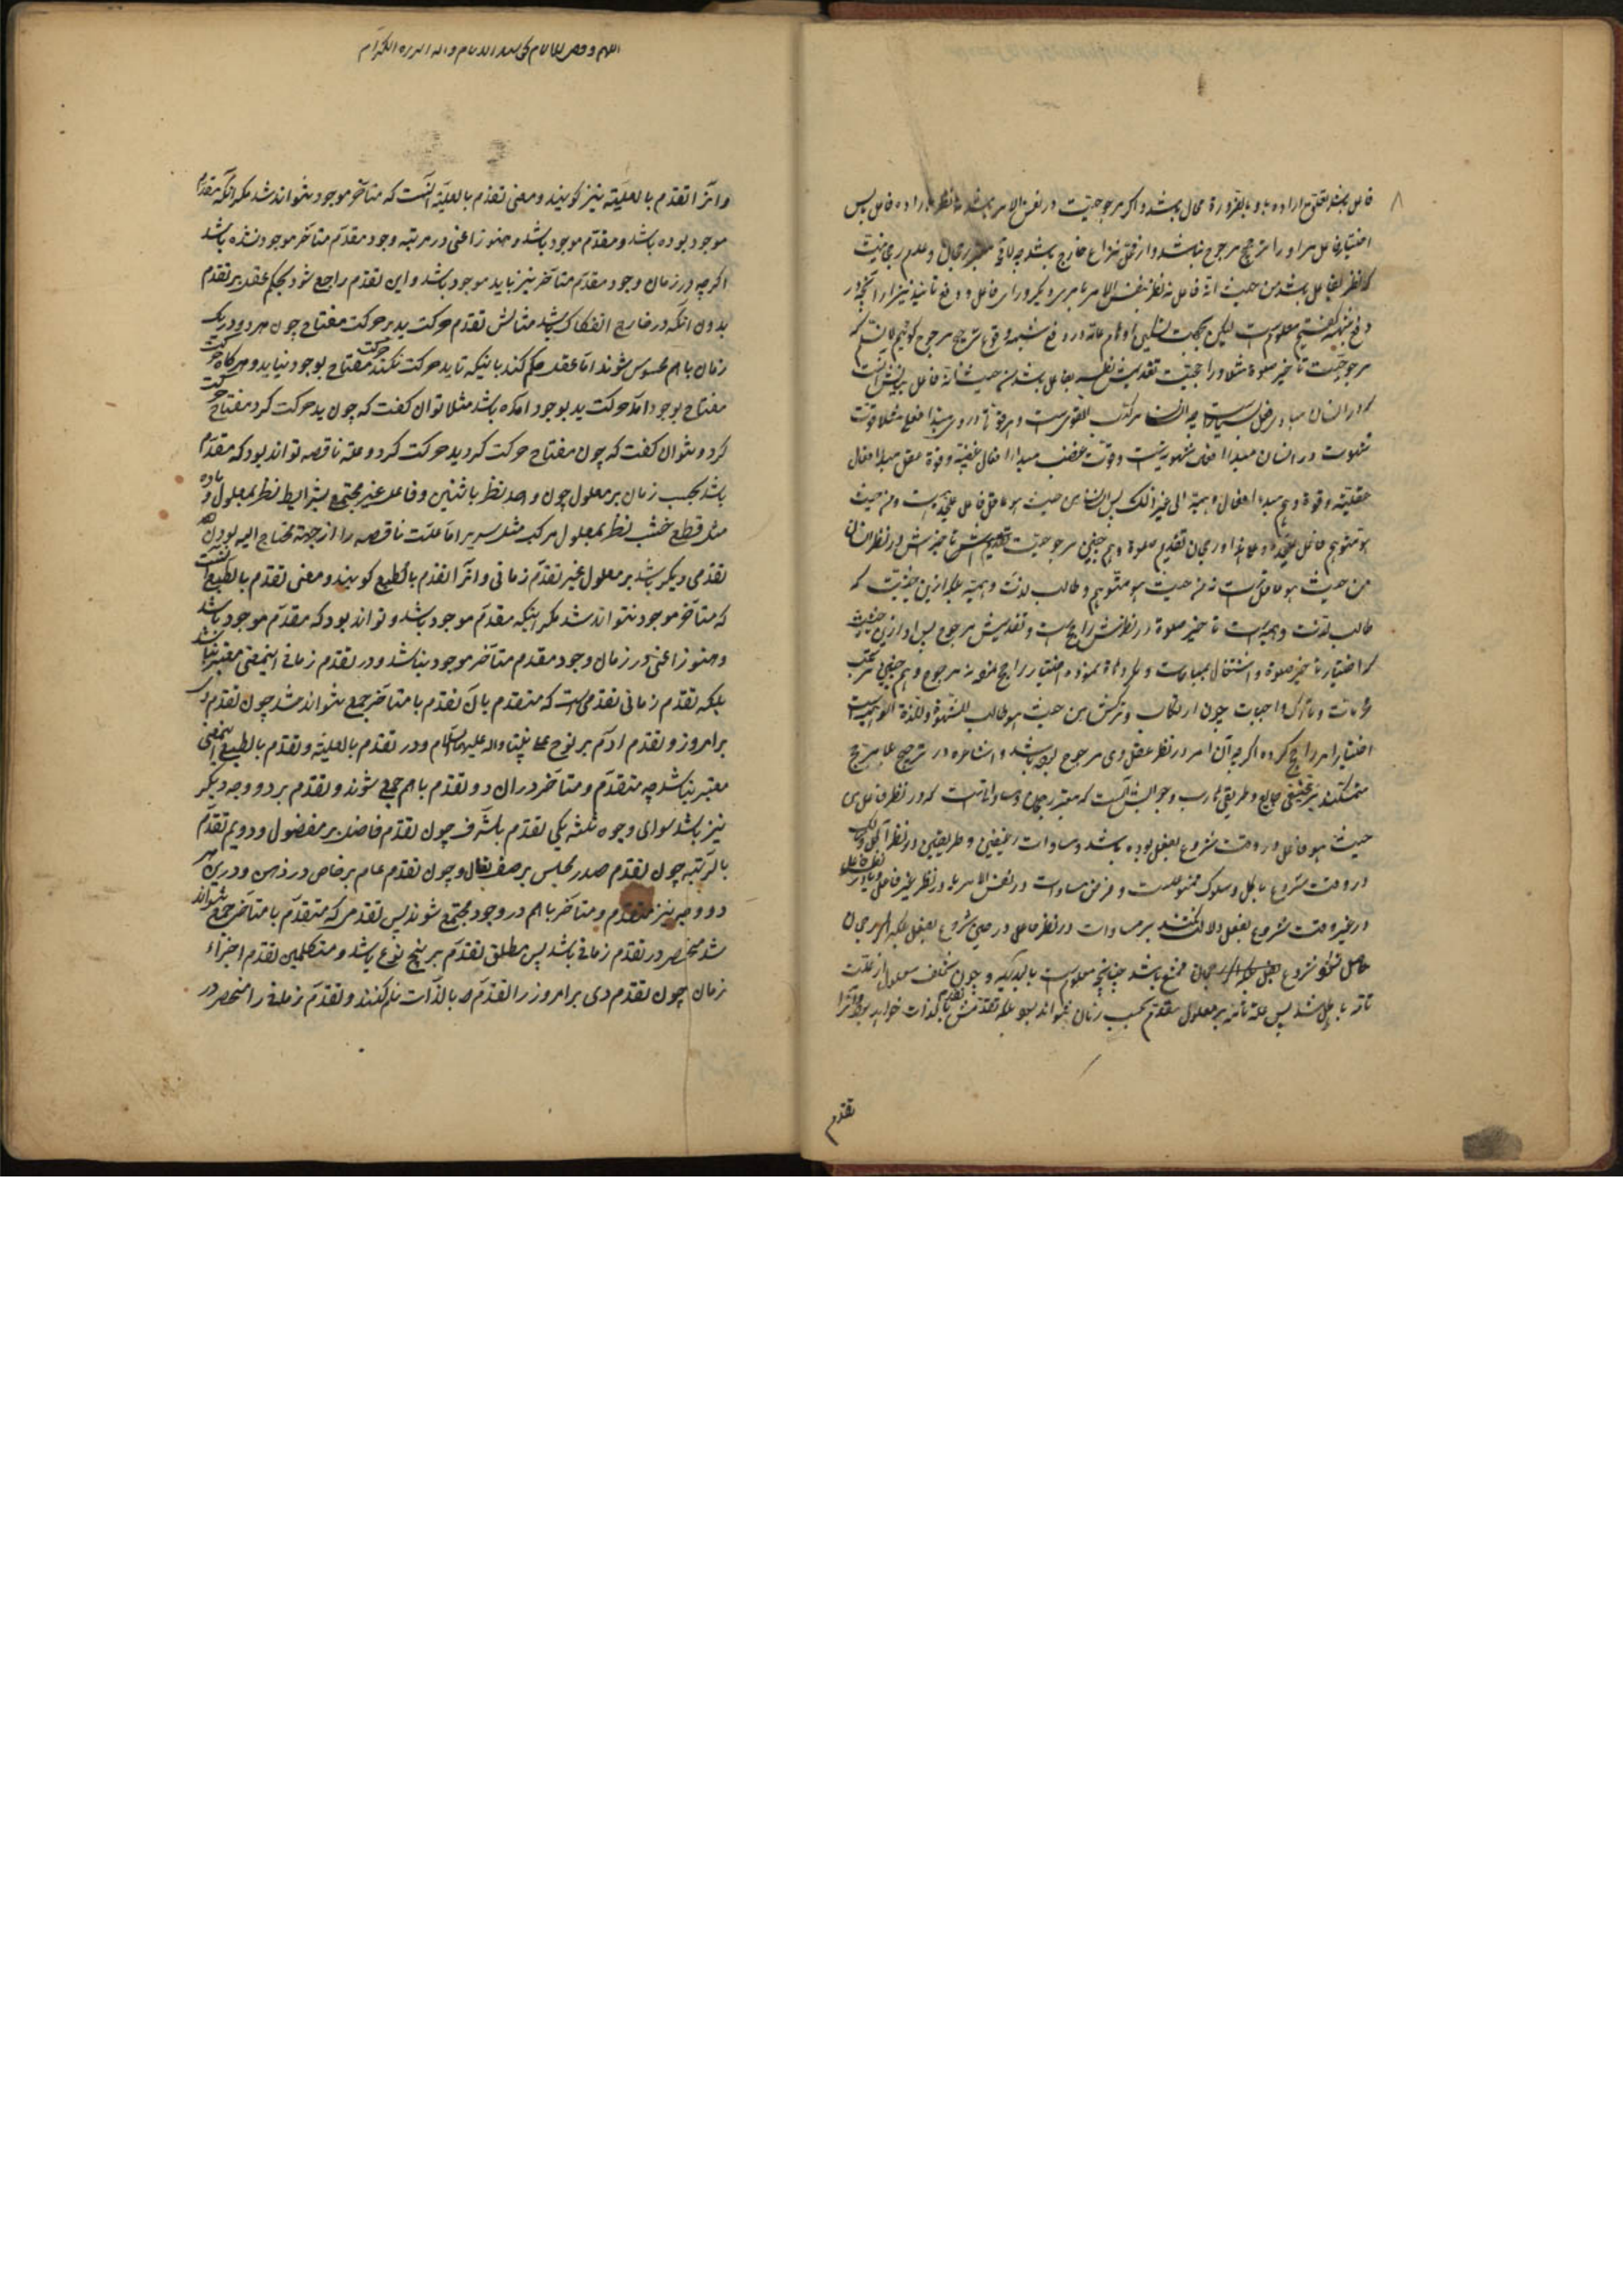 ۸
فاعل باشد تحقق اراده باو بالضرورة محال باشد و اگر مرجوحیت در نفس الامر باشد نه نظر باراده فاعل پس
اختیار فاعل مر او را ترجیح مرجوح نباشد و از محل نزاع خارج باشد چه
که نظر بفاعل باشد من حیث انه فاعل نه نظر بنفس الامر یا امر دیگر ورای فاعل و دفع
دفع شبهه گفتیم معلومست لیکن بجهت تسکین اوهام عامه در دفع شبهه وقوع ترجیح مرجوح گوئیم لا نسلم که
مرجوحیت تأخیر صلوة مثلا و راجحیت تقدیمش نظر بفاعل باشد من حیث انه فاعل بیانش آنست
که در انسان مبادی فعل بسیارست چه انسان مرکب القویست و هر قوتی در وی مبدا فعلی مثلا قوت
شهوت در انسان مبدا افعال شهویه است و قوت غضب مبدا افعال غضبیه و قوة عقل مبدا افعال
عقلیه و قوة وهم مبدا افعال وهمیه الی غیر ذلک پس انسان من حیث هو عاقل فاعل علیحده است و من حیث
هو متوهم فاعل علیحده و علی هذا و رجحان تقدیم صلوة و هم چنین مرجوحیت تأخیرش در نظر انسان
من حیث هو عاقل است نه من حیث هو متوهم و طالب لذت وهمیه بلکه ازین حیثیت که
طالب لذت وهمیه است تأخیر صلوة در نظرش راجح است و تقدیمش مرجوح پس او ازین حیثیت
که اختیار تأخیر صلوة و اشتغال بمباحات و مکروهات نموده اختیار راجح نموده نه مرجوح و هم چنین مرتکب
محرمات و تارک واجبات چون ارتکاب و ترکش من حیث هو طالب للشهوة و للذة الوهمیه است
اختیار امر راجح کرده اگر چه آن امر در نظر عقل وی مرجوح بوده باشد و اشاعره در ترجیح بلا مرجح
متمسکند برغیفی جایع و طریقی هارب و جوابش آنست که معتبر رجحان و مساواتست که در نظر فاعل من
حیث هو فاعل در وقت شروع بفعل بوده باشد و مساوات رغیفین و طریقین در نظر آکل و سالک
در وقت شروع باکل و سلوک ممنوعست و فرض مساوات در نفس الامر یا در نظر غیر فاعل و یا در نظر فاعل
در غیر وقت شروع بفعل دلالت نکند بر مساوات در نظر فاعل در حین شروع بفعل بلکه اگر رجحان
حاصل نشود شروع بفعل ممتنع باشد چنانچه معلومست بالبدیهه و چون تخلف معلول از علت
تامه باطل شد پس علة تامه بر معلول مقدم بحسب زمان نتواند بود بلکه تقدمش تقدم بالذات خواهد بود و آنرا
تقدم
و انرا تقدم بالعلیّة نیز گویند و معنی تقدم بالعلیّة آنست که متأخر موجود نتواند شد مگر انکه مقدّم
موجود بوده باشد و مقدّم موجود باشد و هنوز اعنی در مرتبه وجود مقدّم متأخر موجود نشده باشد
اگرچه در زمان وجود مقدّم متأخر نیز باید موجود باشد و این تقدّم راجع شود بحکم عقل بر تقدم
بدون انکه در خارج انفکاک باشد مثالش تقدم حرکت ید بر حرکت مفتاح چون هر دو در یک
زمان باهم محسوس شوند امّا عقل حکم کند بانیکه تا ید حرکت نکند حرکت مفتاح بوجود نیاید و هر گاه حرکت
مفتاح بوجود آمد حرکت ید بوجود آمده باشد مثلا توان گفت که چون ید حرکت کرد مفتاح حرکت
کرد و نتوان گفت که چون مفتاح حرکت کرد ید حرکت کرد و علّة ناقصه تواند بود که مقدّم
باشد بحسب زمان بر معلول چون واحد نظر باثنین و فاعل غیر مجتمع بشرایط نظر بمعلول و ماده
مثل قطع خشب نظر بمعلول مرکب مثل سریر امّا علّت ناقصه را از جهة محتاج الیه بودن هم
تقدمی دیگر باشد بر معلول غیر تقدّم زمانی و انرا تقدم بالطبع گویند و معنی تقدم بالطبع آنست
که متأخر موجود نتواند شد مگر اینکه مقدّم موجود باشد و تواند بود که مقدّم موجود باشد
و هنوز اعنی در زمان وجود مقدم متأخر موجود نباشد و در تقدّم زمانی اینمعنی معتبر نباشد
بلکه تقدّم زمانی تقدمی است که متقدم بآن تقدم با متأخر جمع نتواند شد چون تقدّم دی
بر امروز و تقدم ادم بر نوح علی نبینا و اله و علیهما السلام و در تقدّم بالعلیّة و تقدم بالطبع اینمعنی
معتبر نباشد چه متقدّم و متأخر در ان دو تقدّم باهم جمع شوند و تقدّم بر دو وجه دیگر
نیز باشد سوای وجوه ثلثه یکی تقدّم بالشرف چون تقدّم فاضل بر مفضول و دویم تقدّم
بالرتبه چون تقدّم صدر مجلس بر صف نعال و چون تقدّم عام بر خاص در ذهن و درین هر
دو وجه نیز متقدّم و متأخر باهم در وجود مجتمع شوند پس تقدمی که متقدّم با متأخر جمع نتواند
شد منحصر در تقدّم زمانی باشد پس مطلق تقدّم بر پنج نوع باشد و متکلمین تقدّم اجزاء
زمان چون تقدّم دی بر امروز را تقدّم بالذّات نام کنند و تقدّم زمانی را منحصر در